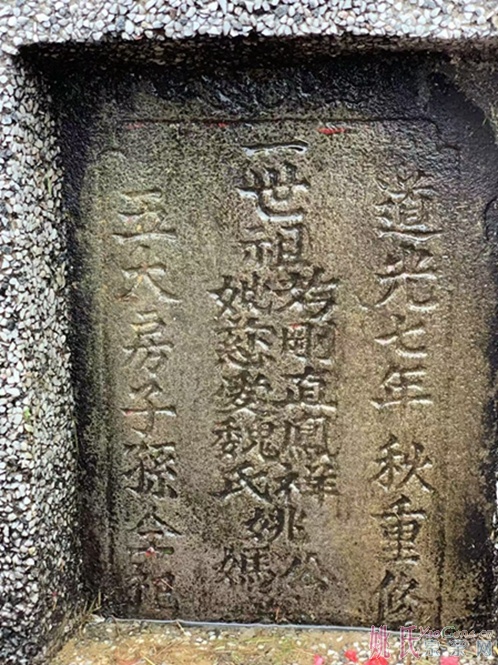 道光七年秋重修
一世祖
考剛直鳳祥姚公
妣慈愛魏氏媽
五大房子孫仝祀
姚氏宗亲网